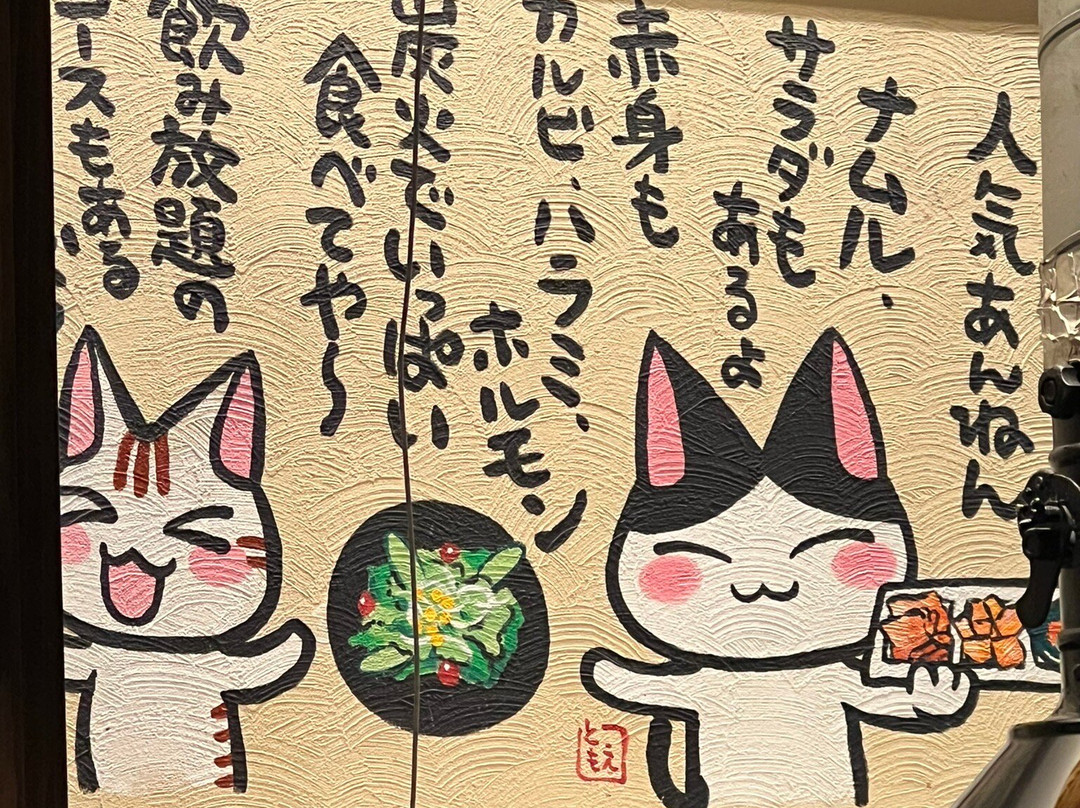 人気あんねん
ナムル・
サラダも
あるよ
赤身も
カルビ、ハラミ、
ホルモン
炭火でいっぱい
食べてや〜
飲み放題の
コースもある
ともえ